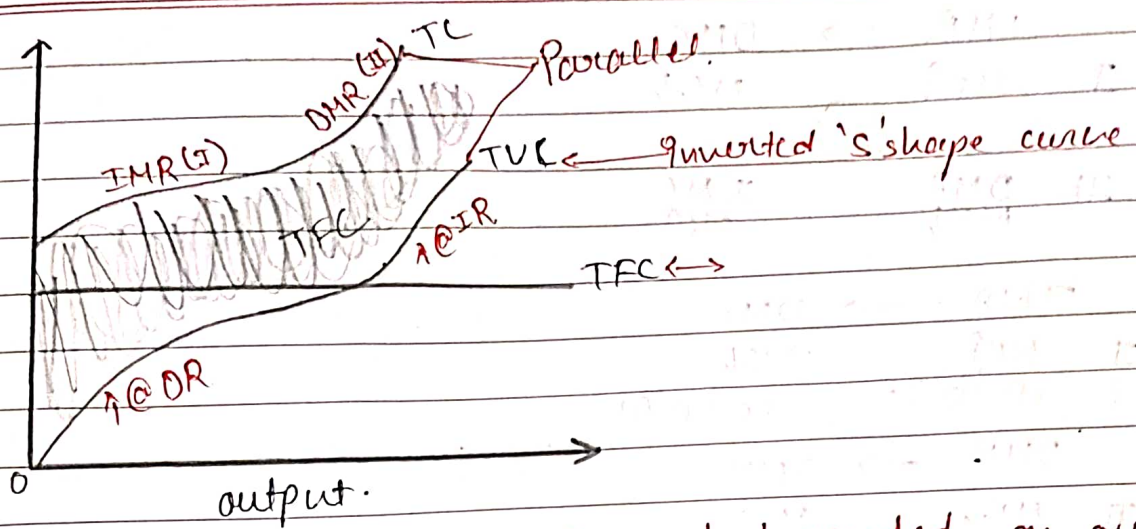 TC
(II)
Parallel.
DMR
IMR(I)
TVC ← Inverted 's'shape curve
TFC
↑@IR
TFC ↔
↑@DR
0
output.